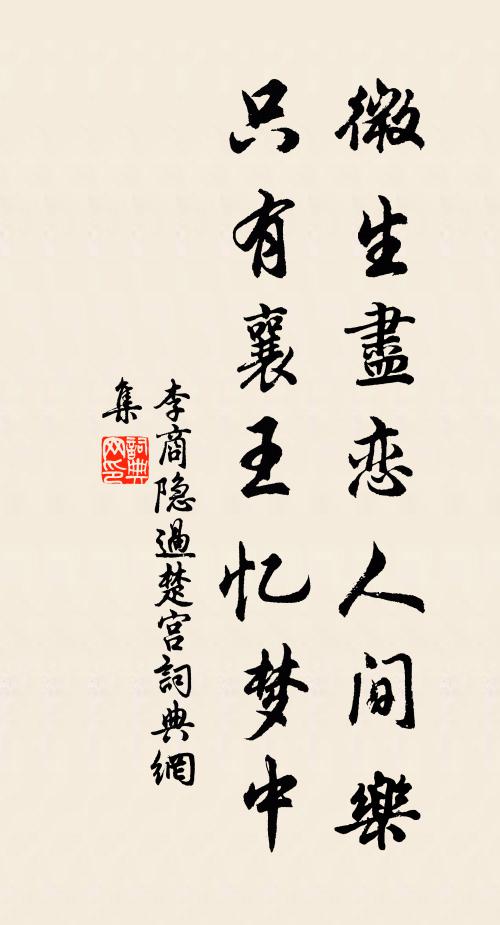 微生盡恋人间樂
只有襄王忆梦中
李商隐過楚宫詞典網
集
詞典网印